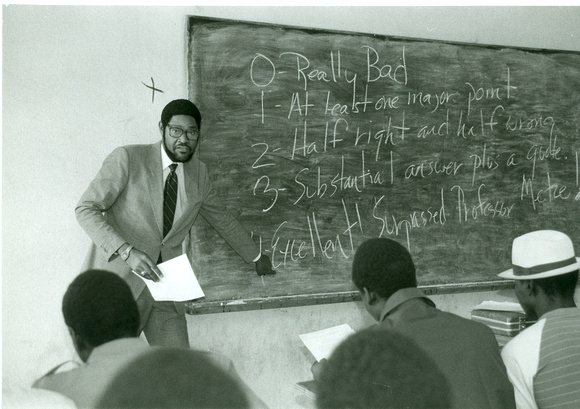 0 - Really Bad
1 - At least one major point
2 - Half right and half wrong
3 - Substantial answer plus a quote.
4 - Excellent! Surpassed Professor